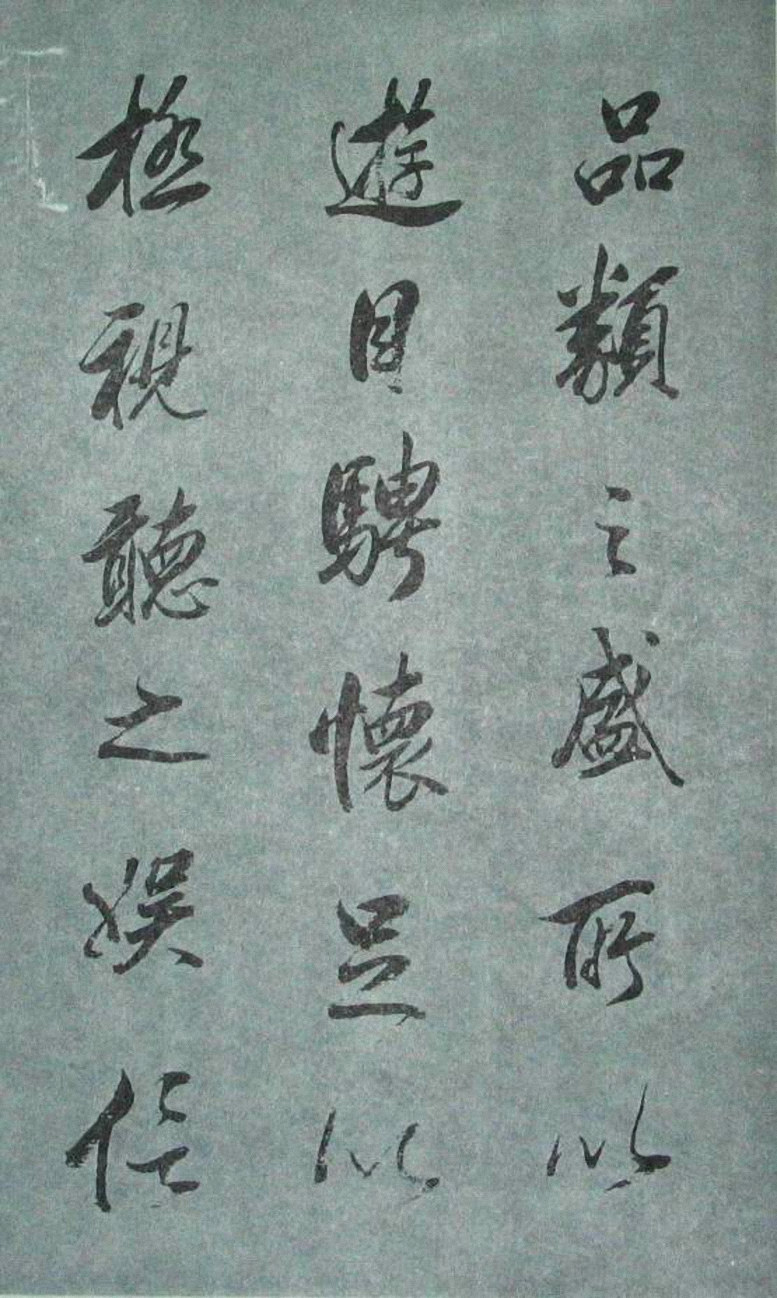 品類之盛所以
遊目騁懷足以
極視聽之娛信